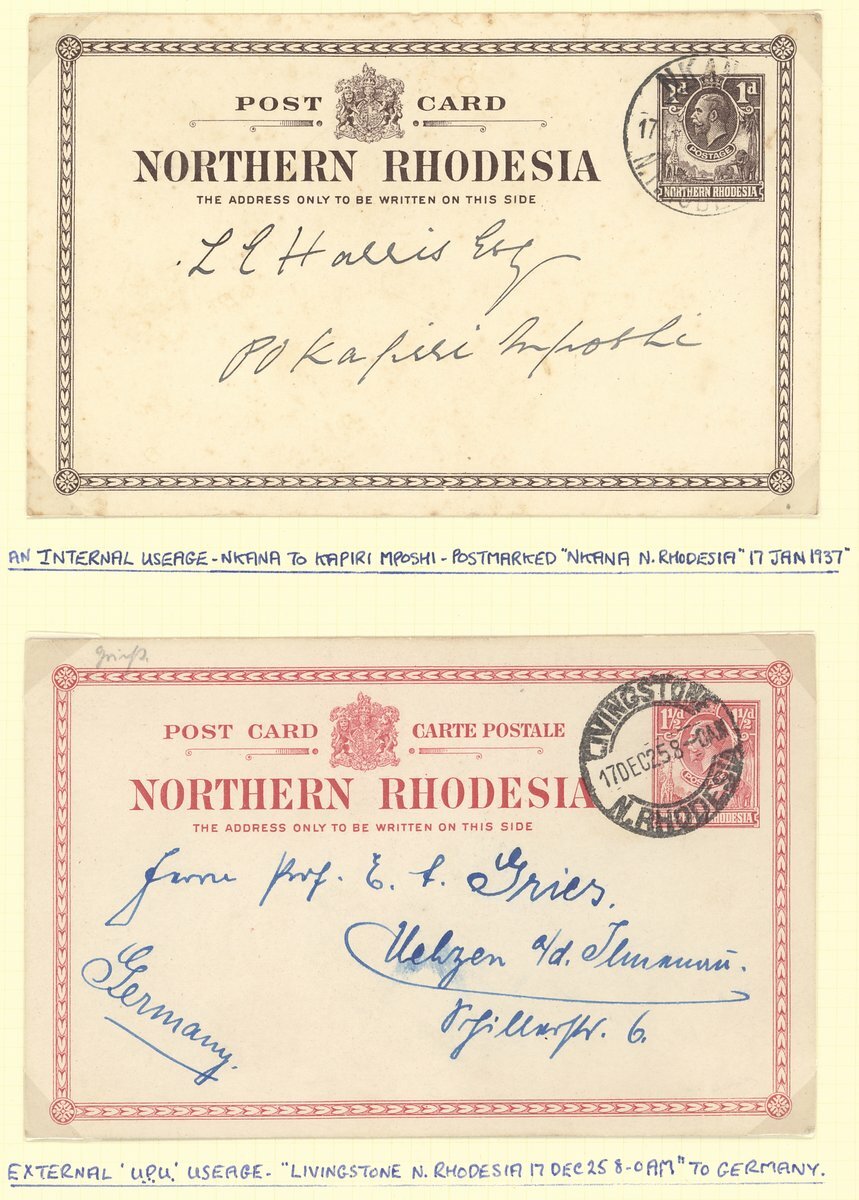 POST CARD
NORTHERN RHODESIA
THE ADDRESS ONLY TO BE WRITTEN ON THIS SIDE
1d
POSTAGE
NORTHERN RHODESIA
NKAN
17
L E Harris Esq
PO Kapiri Mposhi
AN INTERNAL USEAGE - NKANA TO KAPIRI MPOSHI - POSTMARKED "NKANA N. RHODESIA" 17 JAN 1937"
POST CARD CARTE POSTALE
NORTHERN RHODESIA
THE ADDRESS ONLY TO BE WRITTEN ON THIS SIDE
1½d 1½d
RHODESIA
LIVINGSTONE
17DEC25 8-0AM
N.RHODESIA
Herrn Prof. E. A. Gries.
Uelzen a/d. Ilmenau.
Schillerstr. 6.
Germany.
EXTERNAL 'U.P.U.' USEAGE - "LIVINGSTONE N. RHODESIA 17 DEC 25 8-0AM" TO GERMANY.